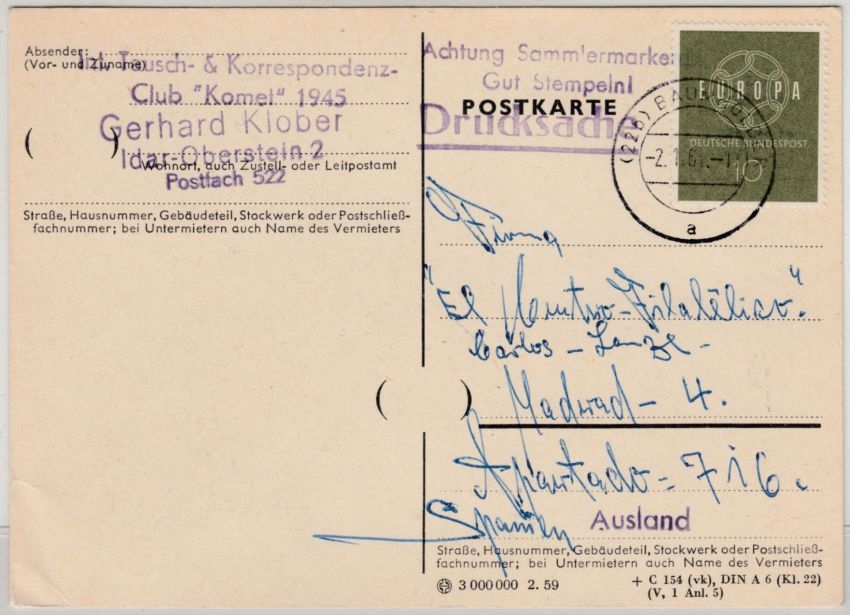 Absender:
(Vor- und Zuname)
Tausch- & Korrespondenz-
Club "Komet" 1945
Gerhard Klober
Idar-Oberstein 2
Wohnort, auch Zustell- oder Leitpostamt
Postfach 522
Straße, Hausnummer, Gebäudeteil, Stockwerk oder Postschließ-
fachnummer; bei Untermietern auch Name des Vermieters
Achtung Sammlermarke
Gut Stempeln!
POSTKARTE
Drucksache
EUROPA
DEUTSCHE BUNDESPOST
10
(22b)
a
Firma
"El
Carlos -
Madrid - 4.
Apartado - 716.
Spanien
Ausland
Straße, Hausnummer, Gebäudeteil, Stockwerk oder Postschließ-
fachnummer; bei Untermietern auch Name des Vermieters
3 000 000 2. 59
+ C 154 (vk), DIN A 6 (Kl. 22)
(V, 1 Anl. 5)